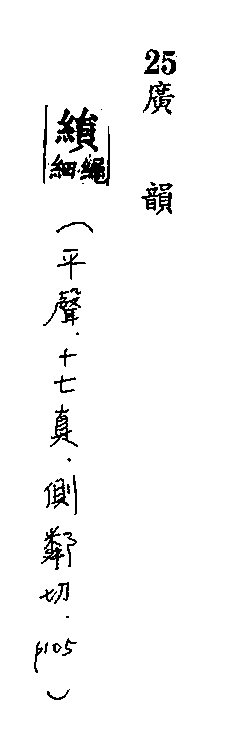 25
廣韻
縝
細繩
(平聲.十七真.側鄰切.p105)